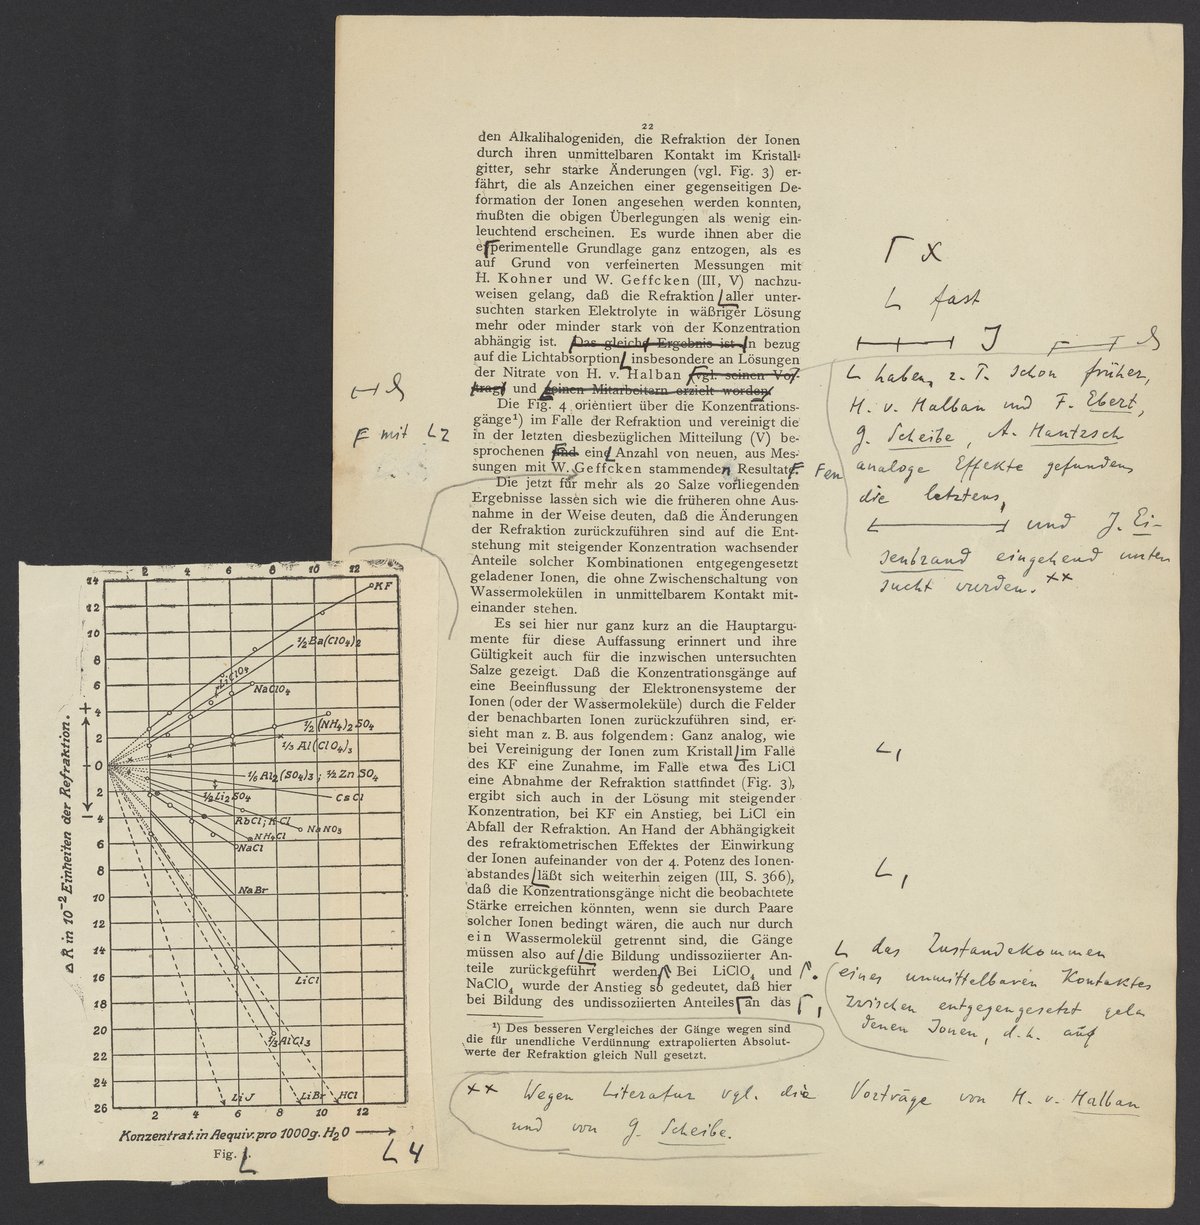 22
den Alkalihalogeniden, die Refraktion der Ionen
durch ihren unmittelbaren Kontakt im Kristall-
gitter, sehr starke Änderungen (vgl. Fig. 3) er-
fährt, die als Anzeichen einer gegenseitigen De-
formation der Ionen angesehen werden konnten,
mußten die obigen Überlegungen als wenig ein-
leuchtend erscheinen. Es wurde ihnen aber die
experimentelle Grundlage ganz entzogen, als es
auf Grund von verfeinerten Messungen mit
H. Kohner und W. Geffcken (III, V) nachzu-
weisen gelang, daß die Refraktion aller unter-
suchten starken Elektrolyte in wäßriger Lösung
mehr oder minder stark von der Konzentration
abhängig ist. Das gleiche Ergebnis ist in bezug
auf die Lichtabsorption insbesondere an Lösungen
der Nitrate von H. v. Halban (vgl. seinen Vor-
trag) und seinen Mitarbeitern erzielt worden.
Die Fig. 4 orientiert über die Konzentrations-
gänge¹) im Falle der Refraktion und vereinigt die
in der letzten diesbezüglichen Mitteilung (V) be-
sprochenen und eine Anzahl von neuen, aus Mes-
sungen mit W. Geffcken stammenden Resultate.
Die jetzt für mehr als 20 Salze vorliegenden
Ergebnisse lassen sich wie die früheren ohne Aus-
nahme in der Weise deuten, daß die Änderungen
der Refraktion zurückzuführen sind auf die Ent-
stehung mit steigender Konzentration wachsender
Anteile solcher Kombinationen entgegengesetzt
geladener Ionen, die ohne Zwischenschaltung von
Wassermolekülen in unmittelbarem Kontakt mit-
einander stehen.
Es sei hier nur ganz kurz an die Hauptargu-
mente für diese Auffassung erinnert und ihre
Gültigkeit auch für die inzwischen untersuchten
Salze gezeigt. Daß die Konzentrationsgänge auf
eine Beeinflussung der Elektronensysteme der
Ionen (oder der Wassermoleküle) durch die Felder
der benachbarten Ionen zurückzuführen sind, er-
sieht man z. B. aus folgendem: Ganz analog, wie
bei Vereinigung der Ionen zum Kristall im Falle
des KF eine Zunahme, im Falle etwa des LiCl
eine Abnahme der Refraktion stattfindet (Fig. 3),
ergibt sich auch in der Lösung mit steigender
Konzentration, bei KF ein Anstieg, bei LiCl ein
Abfall der Refraktion. An Hand der Abhängigkeit
des refraktometrischen Effektes der Einwirkung
der Ionen aufeinander von der 4. Potenz des Ionen-
abstandes läßt sich weiterhin zeigen (III, S. 366),
daß die Konzentrationsgänge nicht die beobachtete
Stärke erreichen könnten, wenn sie durch Paare
solcher Ionen bedingt wären, die auch nur durch
ein Wassermolekül getrennt sind, die Gänge
müssen also auf die Bildung undissoziierter An-
teile zurückgeführt werden. Bei LiClO₄ und
NaClO₄ wurde der Anstieg so gedeutet, daß hier
bei Bildung des undissoziierten Anteiles an das
¹) Des besseren Vergleiches der Gänge wegen sind
die für unendliche Verdünnung extrapolierten Absolut-
werte der Refraktion gleich Null gesetzt.
x
fast
J
haben, z. T. schon früher,
H. v. Halban und F. Ebert,
G. Scheibe, A. Hantzsch
analoge Effekte gefunden,
die letztens,
und J. Ei-
senbrand eingehend unter-
sucht wurden. **
mit L2
en
das Zustandekommen
eines unmittelbaren Kontaktes
zwischen entgegengesetzt gela
denen Ionen, d.h. auf
** Wegen Literatur vgl. die Vorträge von H. v. Halban
und von G. Scheibe.
2 4 6 8 10 12
14
12
10
8
6
4
2
0
2
4
6
8
10
12
14
16
18
20
22
24
26
+
−
Δ R in 10⁻² Einheiten der Refraktion.
KF
½Ba(ClO₄)₂
LiClO₄
NaClO₄
½(NH₄)₂SO₄
⅓Al(ClO₄)₃
⅙Al₂(SO₄)₃; ½ZnSO₄
½Li₂SO₄
CsCl
RbCl; KCl
NaNO₃
NH₄Cl
NaCl
NaBr
LiCl
⅓AlCl₃
LiJ
LiBr
HCl
2 4 6 8 10 12
Konzentrat. in Aequiv. pro 1000g. H₂O
Fig.
4